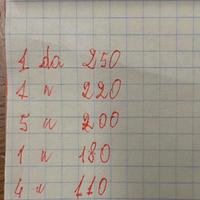 1 da 250
1 n 220
5 u 200
1 n 180
4 u 110